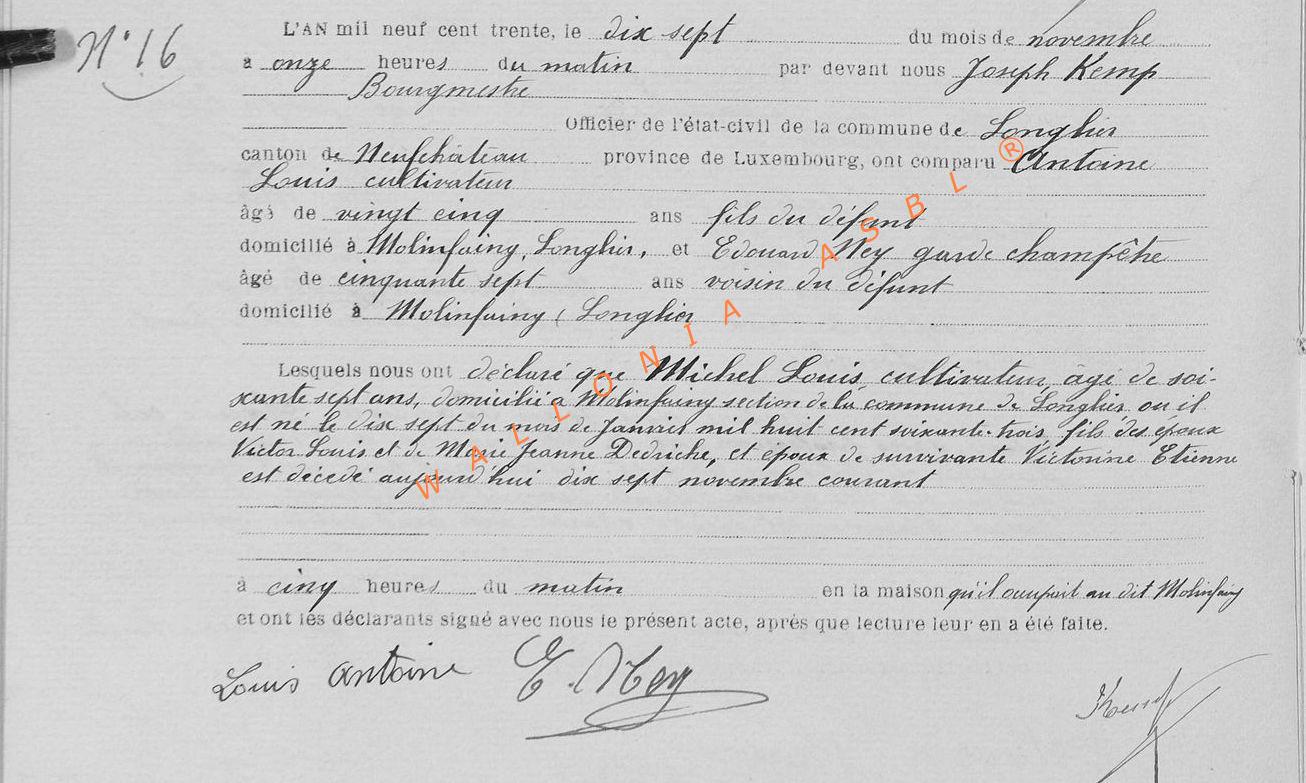 N° 16
L'AN mil neuf cent trente, le dix sept du mois de novembre
à onze heures du matin par devant nous Joseph Kemp
Bourgmestre
Officier de l'état-civil de la commune de Longlier
canton de Neufchâteau province de Luxembourg, ont comparu Antoine
Louis cultivateur
âgé de vingt cinq ans fils du défunt
domicilié à Molinfaing, Longlier, et Edouard Ney garde champêtre
âgé de cinquante sept ans voisin du défunt
domicilié à Molinfaing (Longlier
Lesquels nous ont déclaré que Michel Louis, cultivateur, âgé de soi-
xante sept ans, domicilié à Molinfaing section de la commune de Longlier où il
est né le dix sept du mois de Janvier mil huit cent soixante-trois, fils des époux
Victor Louis et de Marie Jeanne Dedriche, et époux de survivante Victorine Etienne
est décédé aujourd'hui dix sept novembre courant
à cinq heures du matin en la maison qu'il occupait au dit Molinfaing
et ont les déclarants signé avec nous le présent acte, après que lecture leur en a été faite.
Louis Antoine E. Ney Kemp
WALLONIA ASBL ®